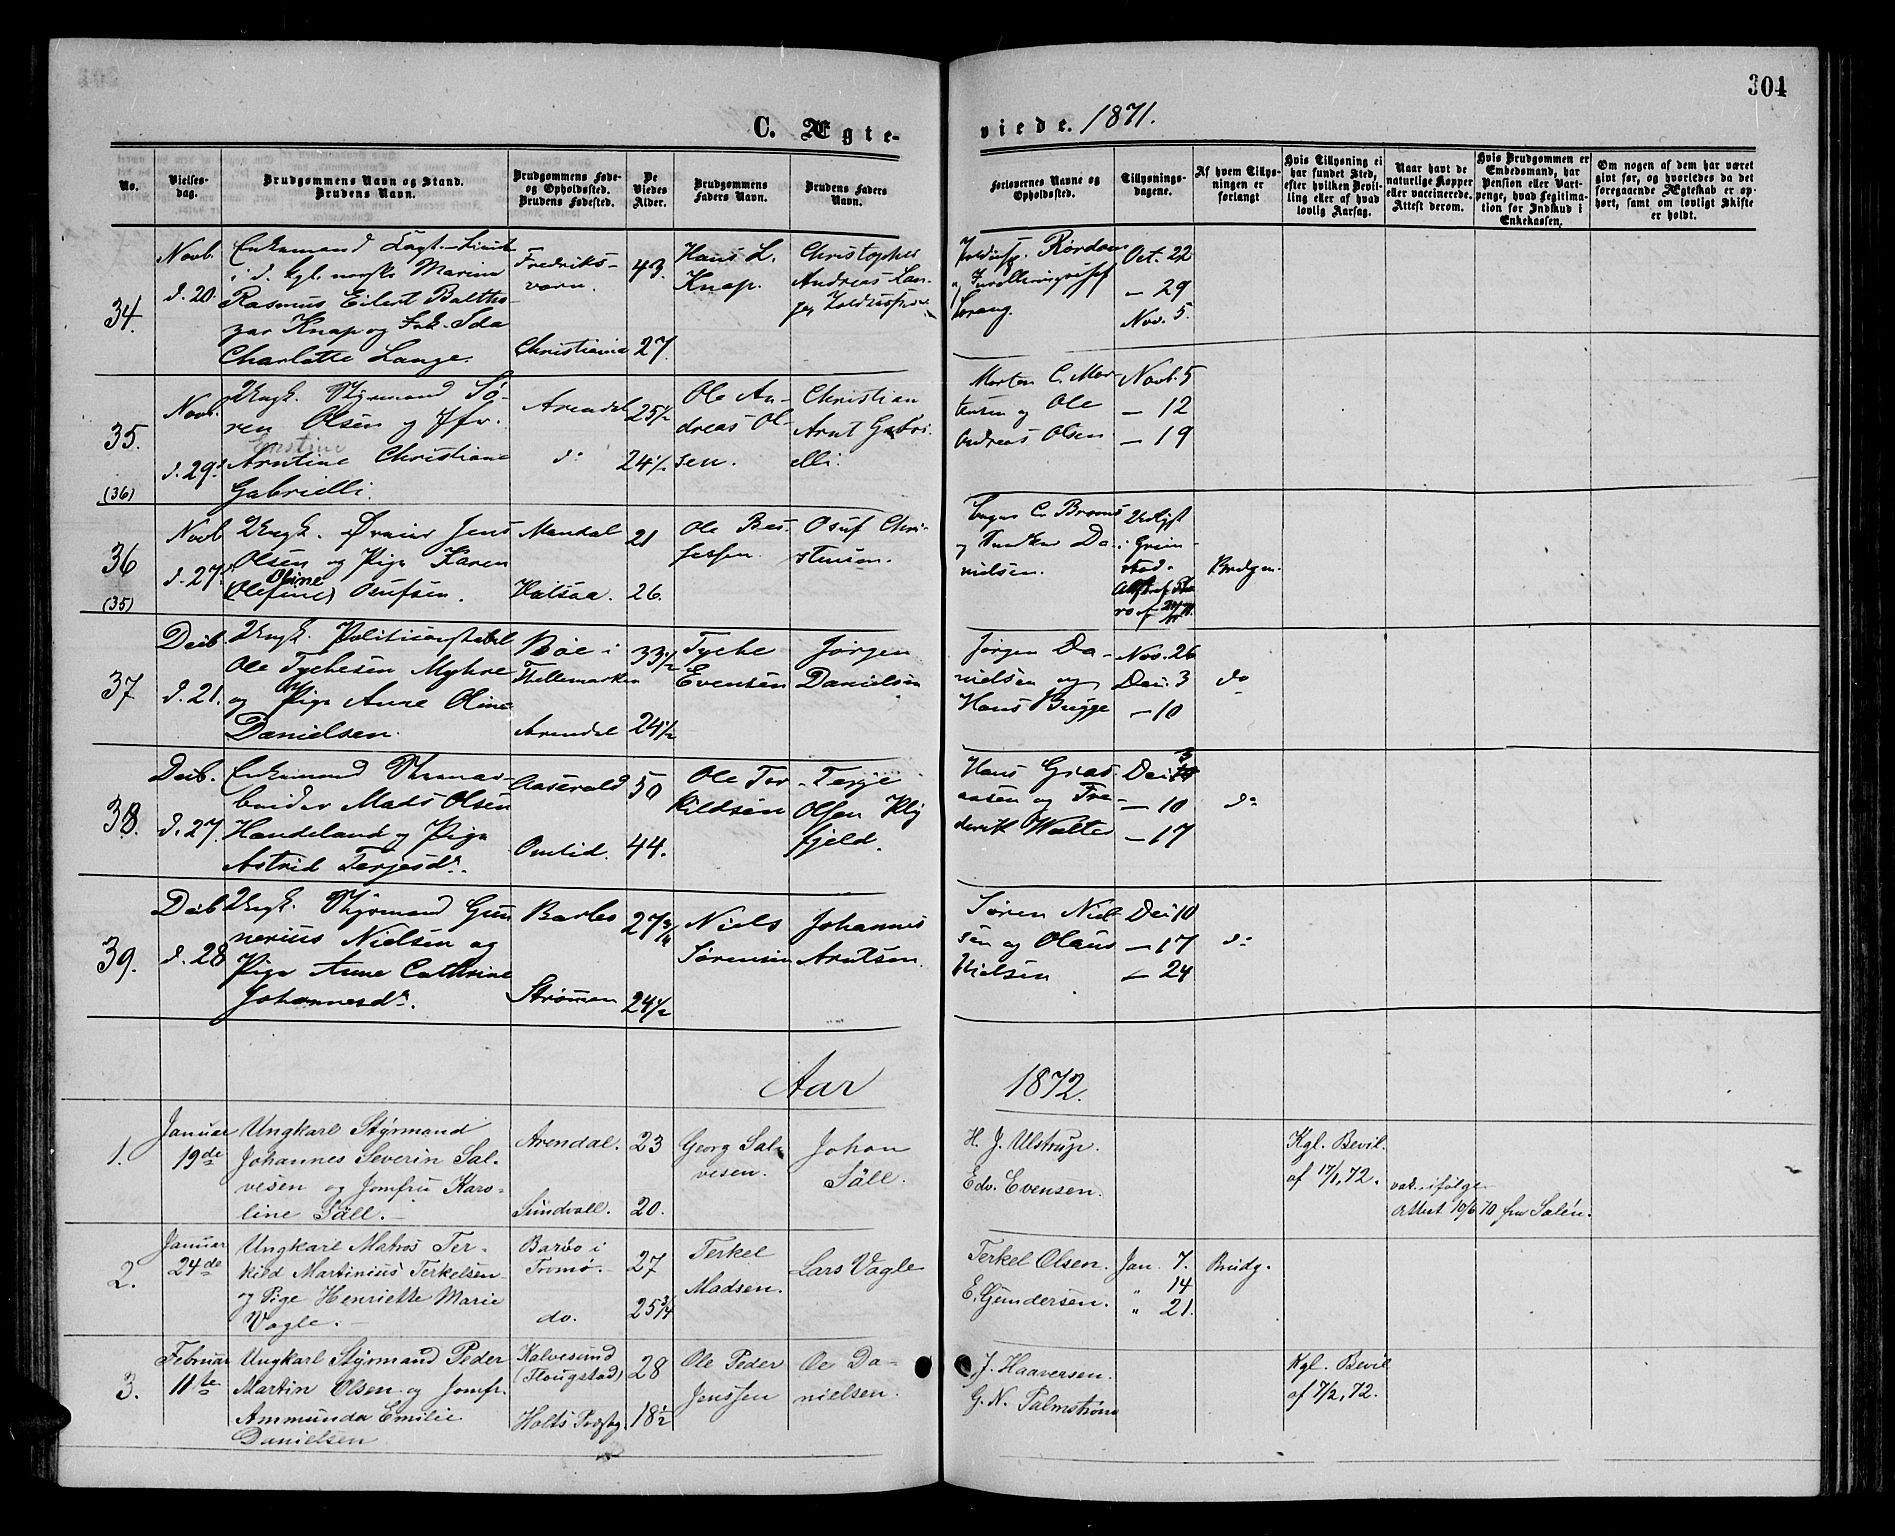 304
C. Ægte-
viede. 1871.
No.
Vielses-
dag.
Brudgommens Navn og Stand.
Brudens Navn.
Brudgommens Føde-
og Opholdssted.
Brudens Fødested.
De
Viedes
Alder.
Brudgommens
Faders Navn.
Brudens Faders
Navn.
Forlovernes Navne og
Opholdssted.
Tillysnings-
dagene.
Af hvem Tillys-
ningen er
forlangt
Hvis Tillysning ei
har fundet Sted,
efter hvilken Bevil-
ling eller af hvad
lovlig Aarsag.
Naar havt de
naturlige Kopper
eller vaccinerede.
Attest derom.
Hvis Brudgommen er
Embedsmand, har
Pension eller Vart-
penge, hvad Legitima-
tion for Indskud i
Enkekassen.
Om nogen af dem har været
gift før, og hvorledes da det
foregaaende Ægteskab er op-
hørt, samt om lovligt Skifte
er holdt.
34.
Novb.
d. 20.
Enkemand Capt-Lieut
i d. kgl. norske Marine
Rasmus Eilert Baltha-
zar Knap og Frk. Ida
Charlotte Lange.
Fredriks-
værn.
Christiania
43.
27.
Hans L.
Knap.
Christopher
Andreas Lan-
ge,
Rørdam
Oct. 22
- 29
Nov. 5.
35.
(36)
Novb.
d. 29.
Ungk. Styrmand Sø-
ren Olsen og Jfr.
Arntine Christiane
Gabrielli.
Arendal
do
25 1/2
24 1/2
Ole An-
dreas Ol-
sen.
Christian
Arnt Gabri-
elli.
Morten C. Mor-
tensen og Ole
Andreas Olsen
Novb. 5
- 12
- 19
36
(35)
Novb
d. 27.
Ungk. Dreier Jens
Olsen og Pige Karen
Oline
(Olefine) Osufsen.
Mandal
Halsaa.
21
26.
Ole
Osuf Chri-
stensen.
og Da-
nielsen.
Brudgm.
37
Decb.
d. 21.
Ungk. Politikonstabel
Ole Tychesen Myhre
og Pige Anne Oline
Danielsen.
Bøe i
Thellemarken
Arendal
33 1/2
24 1/2
Tyche
Evensen
Jørgen
Danielsen
Jørgen Da-
nielsen og
Hans Bugge
Nov. 26
Dec. 3
- 10
do
38.
Decb.
d. 27.
Enkemand
Mads Olsen
Handeland og Pige
Astrid Terjesdr.
Aaserald
Omlid.
50
44.
Ole Tor-
kildsen
Terje
Olsen
fjeld.
Hans Graa-
aasen og Fre-
derik Walter
Dec. 3
- 10
- 17
do
39.
Decb
d. 28
Ungk. Styrmand Gun
nerius Nielsen og
Pige Anne Cathrine
Johannesdr.
Barbo
Strømmen
27 3/4
24 1/2
Niels
Sørensen
Johannes
Arntsen.
Søren Niel
sen og Olaus
Nielsen
Dec 10
- 17
- 24
do
Aar
1872.
1.
Januar
19de
Ungkarl Styrmand
Johannes Severin Sal-
vesen og Jomfru Karo-
line Säll.
Arendal.
Sundvall.
23
20.
Georg Sal-
vesen.
Johan
Säll.
H. J. Ulstrup.
Edv. Evensen.
Kgl. Bevil.
af 17/1, 72.
vac. ifølge
Attest 10/6 70 fra Salén.
2.
Januar
24de
Ungkarl Matros Ter-
kild Martinius Terkelsen
og Pige Henriette Marie
Vagle.
Barbo i
Tromø.
do.
27
25 3/4
Terkel
Madsen.
Lars Vagle
Terkel Olsen.
E. Gundersen.
Jan. 7.
" 14
" 21.
Brudg.
3.
Februar
11te
Ungkarl Styrmand Peder
Martin Olsen og Jomfr.
Ammunda Emilie
Danielsen
Kalvesund
(Flougstad)
Holts Præstg.
28
18 1/2
Ole Peder
Jenssen
Ole Da-
nielsen.
J. Haaversen.
G. N. Palmstrøm
Kgl. Bevil
af 7/2, 72.